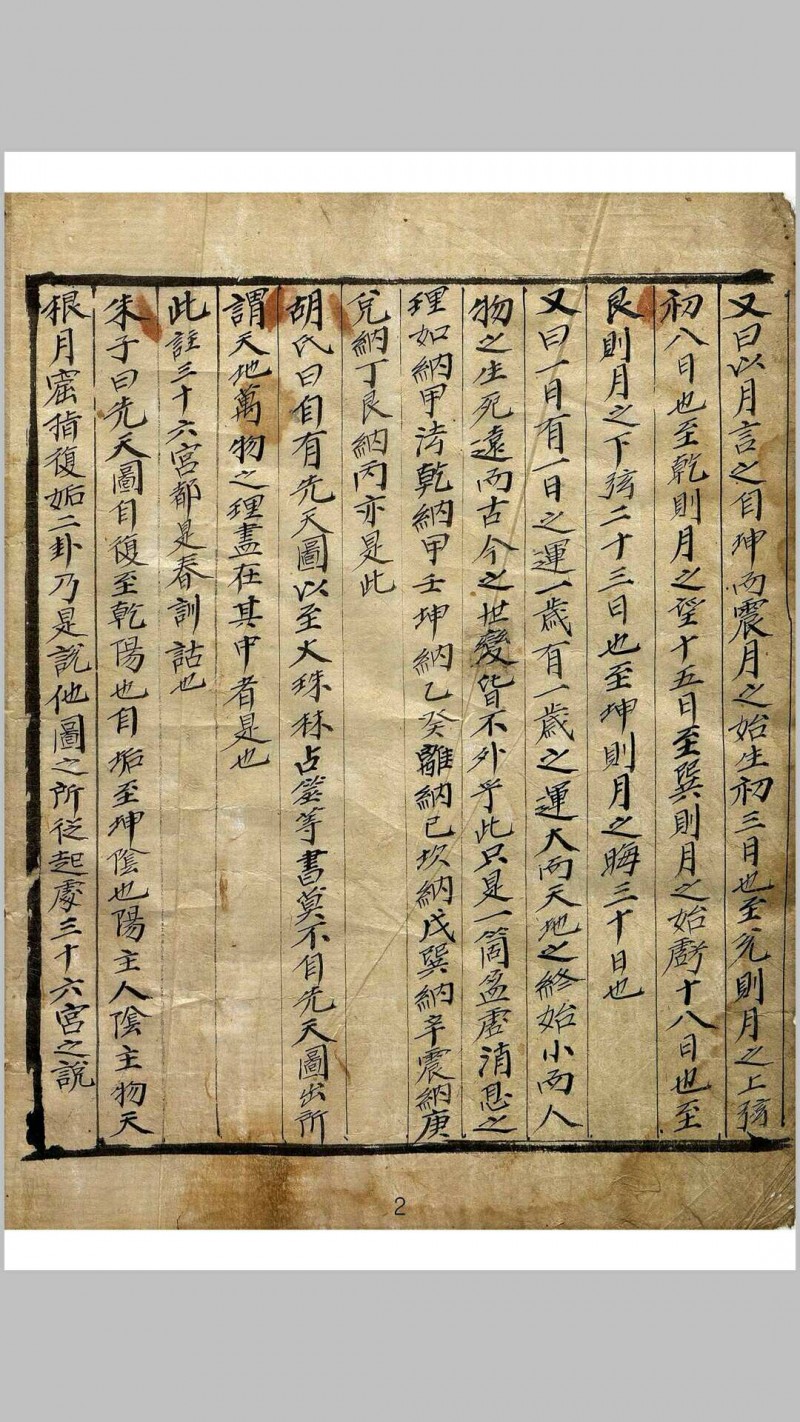 又曰以月言之自坤而震月之始生初三日也至兌則月之上弦
初八日也至乾則月之望十五日至巽則月之始虧十八日也至
艮則月之下弦二十三日也至坤則月之晦三十日也
又曰一日有一日之運一歲有一歲之運大而天地之終始小而人
物之生死遠而古今之世變皆不外乎此只是一箇盈虛消息之
理如納甲法乾納甲壬坤納乙癸離納己坎納戊巽納辛震納庚
兌納丁艮納丙亦是此
胡氏曰自有先天圖以至火珠林占筮等書莫不自先天圖出所
謂天地萬物之理盡在其中者是也
此註三十六宮都是春訓詁也
朱子曰先天圖自復至乾陽也自垢至坤陰也陽主人陰主物天
根月窟指復姤二卦乃是說他圖之所從起處三十六宮之說
2